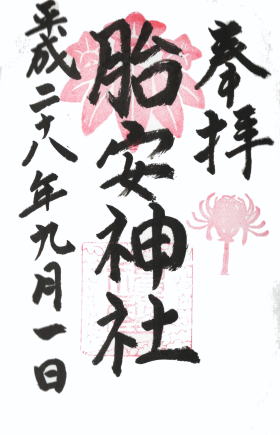 奉拝
胎安神社
平成二十八年九月一日